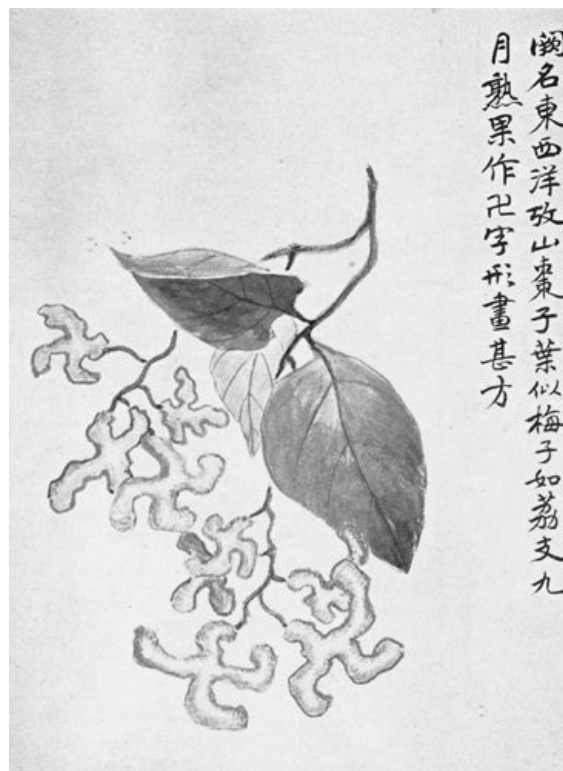 闕名東西洋攷山棗子葉似梅子如荔支九
月熟果作卍字形畫甚方